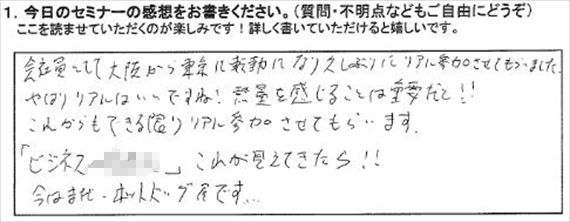 1. 今日のセミナーの感想をお書きください。(質問・不明点などもご自由にどうぞ)
ここを読ませていただくのが楽しみです!詳しく書いていただけると嬉しいです。
会社員として大阪から東京に転勤になり久しぶりにリアル参加させてもらいました。
やはりリアルはいいですね!熱量を感じることは重要だと!!
これからもできる限りリアル参加させてもらいます。
「ビジネス」これが見えてきたら!!
今はまだ、ホットドッグ屋です...